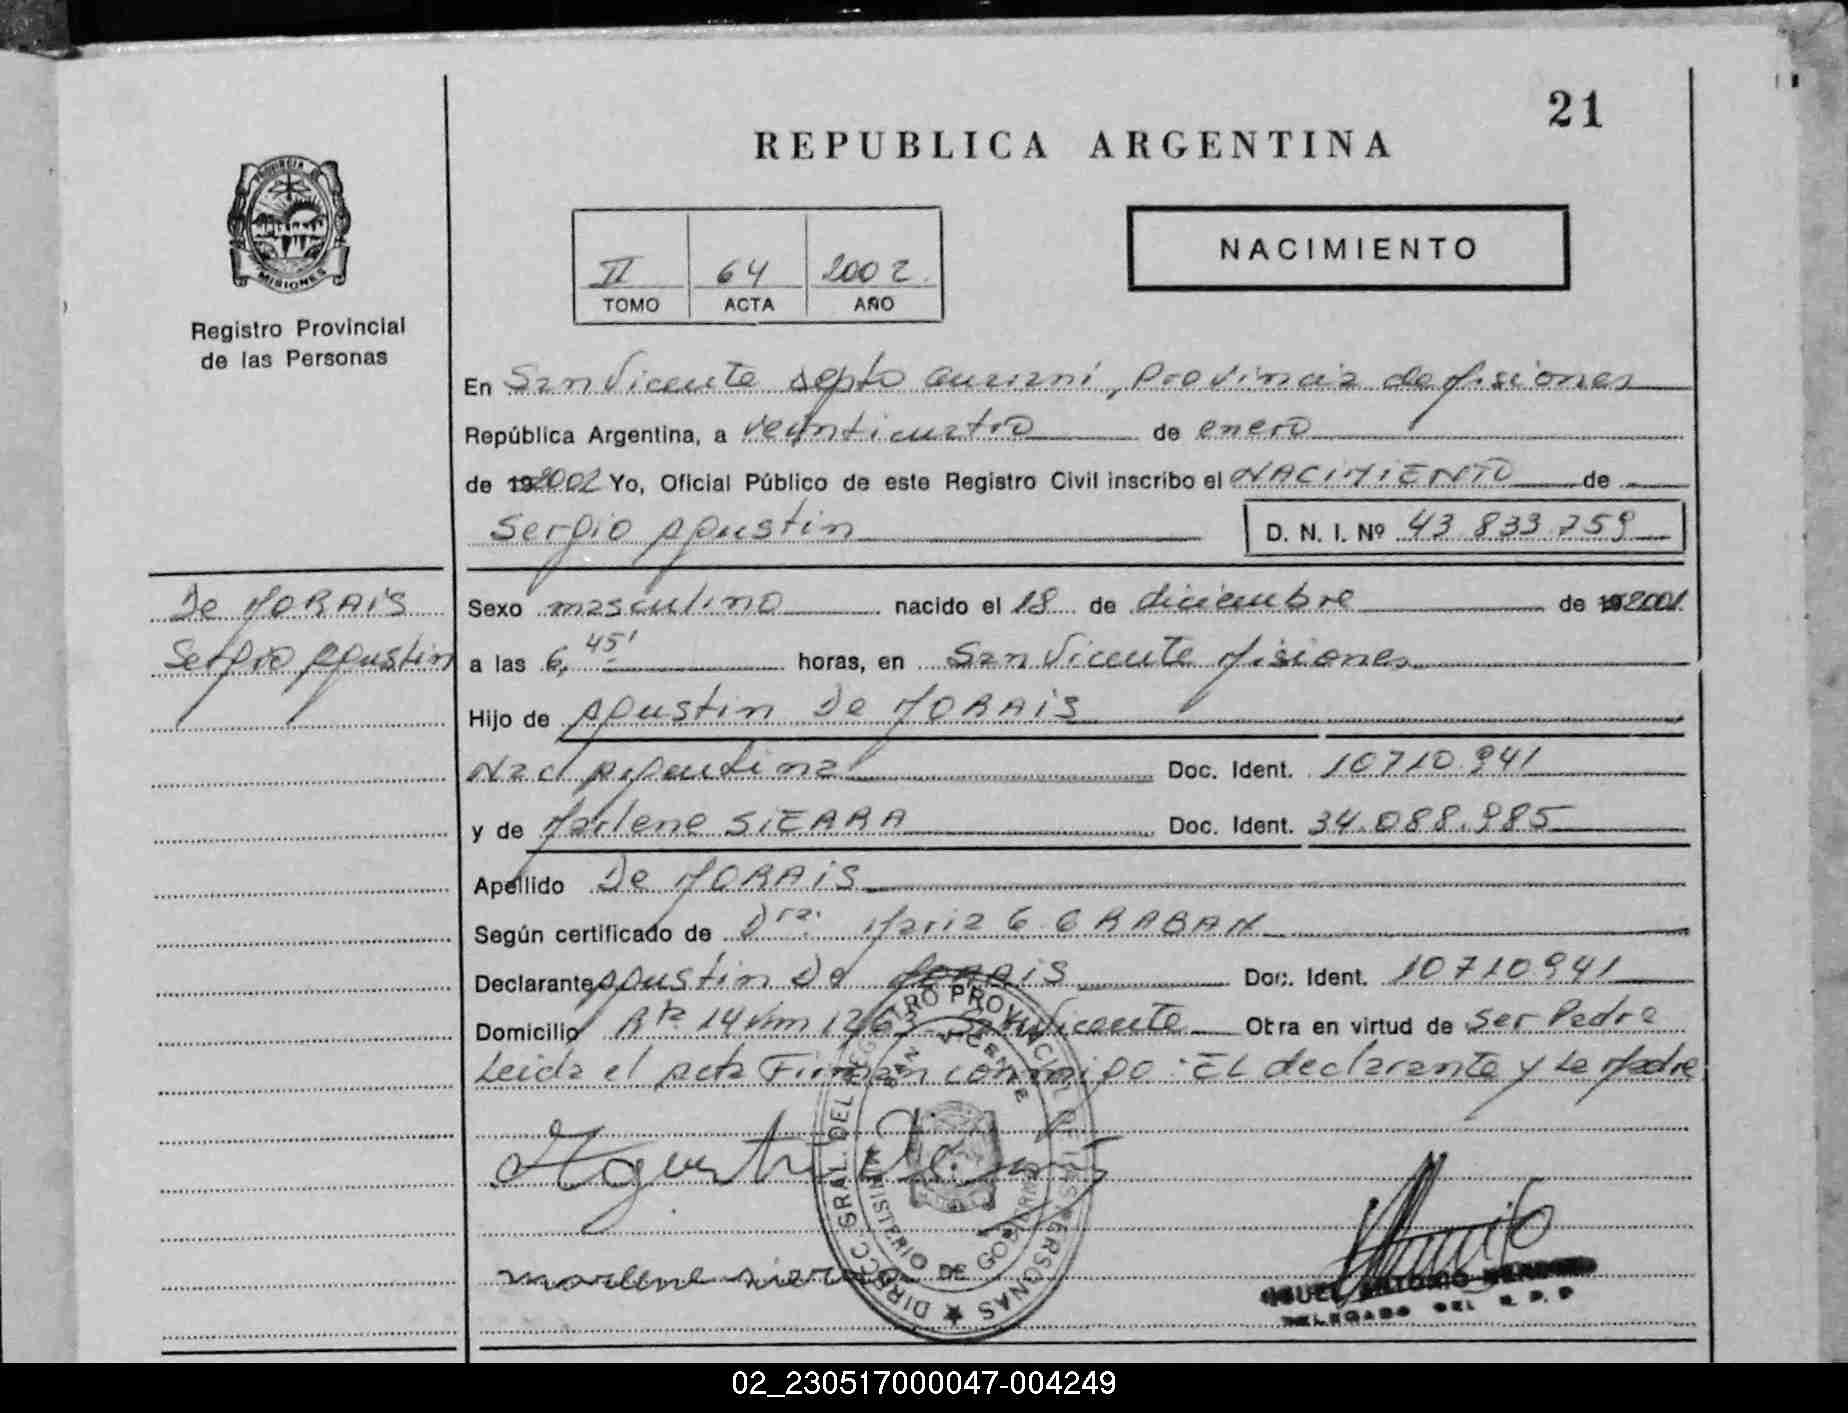 21
REPUBLICA ARGENTINA
PROVINCIA DE
MISIONES
Registro Provincial
de las Personas
II 64 2002
TOMO ACTA AÑO
NACIMIENTO
En San Vicente Depto Guarani, Provincia de Misiones
República Argentina, a veinticuatro de enero
de 192002 Yo, Oficial Público de este Registro Civil inscribo el NACIMIENTO de
Sergio Agustin D. N. I. Nº 43.833.759
De MORAIS
Sergio Agustin
Sexo masculino nacido el 18 de diciembre de 2001
a las 6,45' horas, en San Vicente Misiones
Hijo de Agustin De MORAIS
Nac Argentina Doc. Ident. 10710.941
y de Marlene SIERRA Doc. Ident. 34.088.985
Apellido De MORAIS
Según certificado de Dra. Maria G. GRABAN
Declarante Agustin De MORAIS Doc. Ident. 10710941
Domicilio Rta 14 Km 1263 San Vicente Obra en virtud de Ser Padre
Leida el acta Firman conmigo: EL declarante y La Madre
DIRECC. GRAL. DEL REGISTRO PROVINCIAL DE LAS PERSONAS
SAN VICENTE
MINISTERIO DE GOBIERNO
Agustin De
marlene siera
MIGUEL ANTONIO
DELEGADO DEL R. P. P
02_230517000047-004249